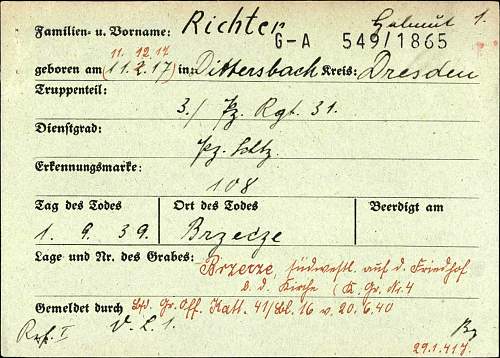 Familien- u. Vorname: Richter Helmut 1.
G-A 549/1865
11. 12. 17
geboren am (11.2.17) in: Dittersbach Kreis: Dresden
Truppenteil:
3./ Pz. Rgt. 31.
Dienstgrad:
Pz. Soltz.
Erkennungsmarke:
108
Tag des Todes Ort des Todes Beerdigt am
1. 9. 39. Brzecze
Lage und Nr. des Grabes: Brzezze, südwestl. auf d. Friedhof
b. d. Kirche (K. Gr. Nr. 4
Gemeldet durch Gr. Off. Katt. 41/Bl. 16 v. 20.6.40
V. L. 1.
29.1.41